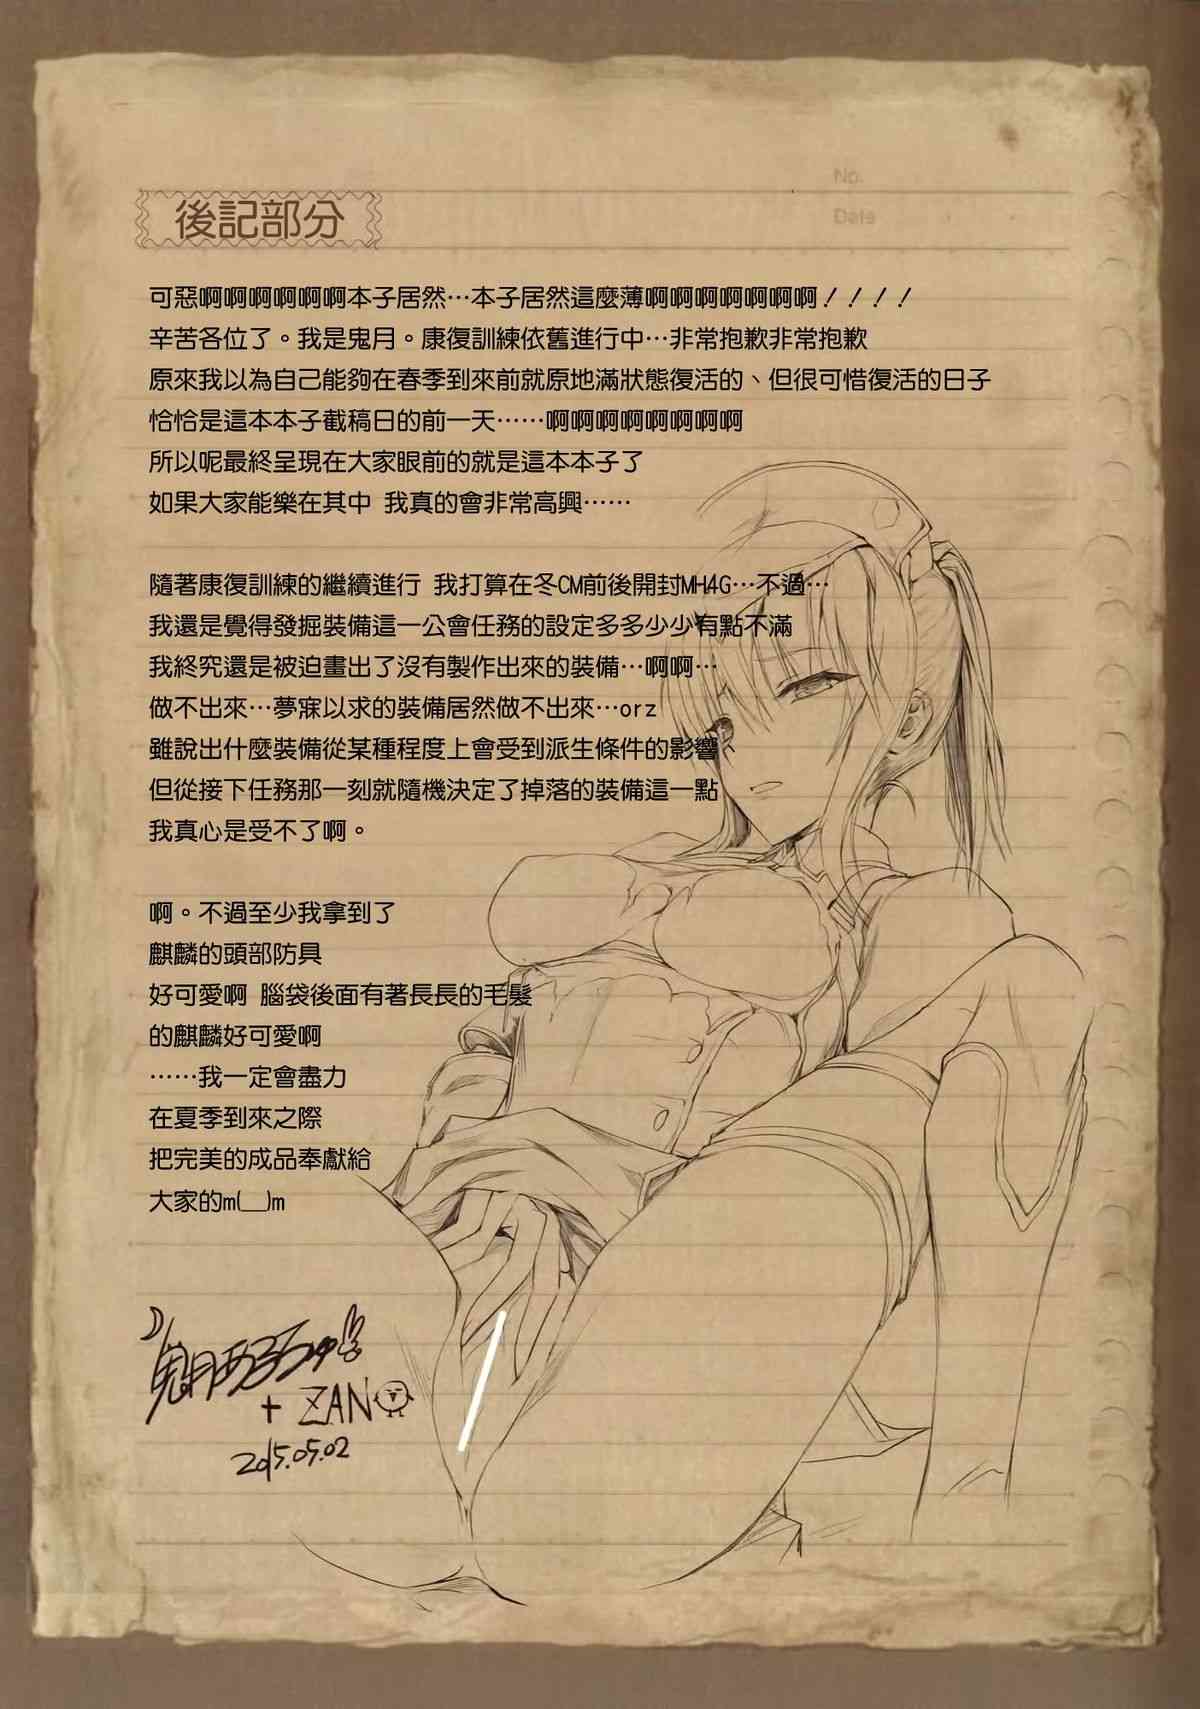 No.
Date
後記部分
可惡啊啊啊啊啊啊本子居然…本子居然這麼薄啊啊啊啊啊啊啊！！！！
辛苦各位了。我是鬼月。康復訓練依舊進行中…非常抱歉非常抱歉
原來我以為自己能夠在春季到來前就原地滿狀態復活的、但很可惜復活的日子
恰恰是這本本子截稿日的前一天……啊啊啊啊啊啊啊啊
所以呢最終呈現在大家眼前的就是這本本子了
如果大家能樂在其中 我真的會非常高興……
隨著康復訓練的繼續進行 我打算在冬CM前後開封MH4G…不過…
我還是覺得發掘裝備這一公會任務的設定多多少少有點不滿
我終究還是被迫畫出了沒有製作出來的裝備…啊啊…
做不出來…夢寐以求的裝備居然做不出來…orz
雖說出什麼裝備從某種程度上會受到派生條件的影響、
但從接下任務那一刻就隨機決定了掉落的裝備這一點
我真心是受不了啊。
啊。不過至少我拿到了
麒麟的頭部防具
好可愛啊 腦袋後面有著長長的毛髮
的麒麟好可愛啊
……我一定會盡力
在夏季到來之際
把完美的成品奉獻給
大家的m(__)m
鬼月あるちゅ
+ ZAN
2015.05.02